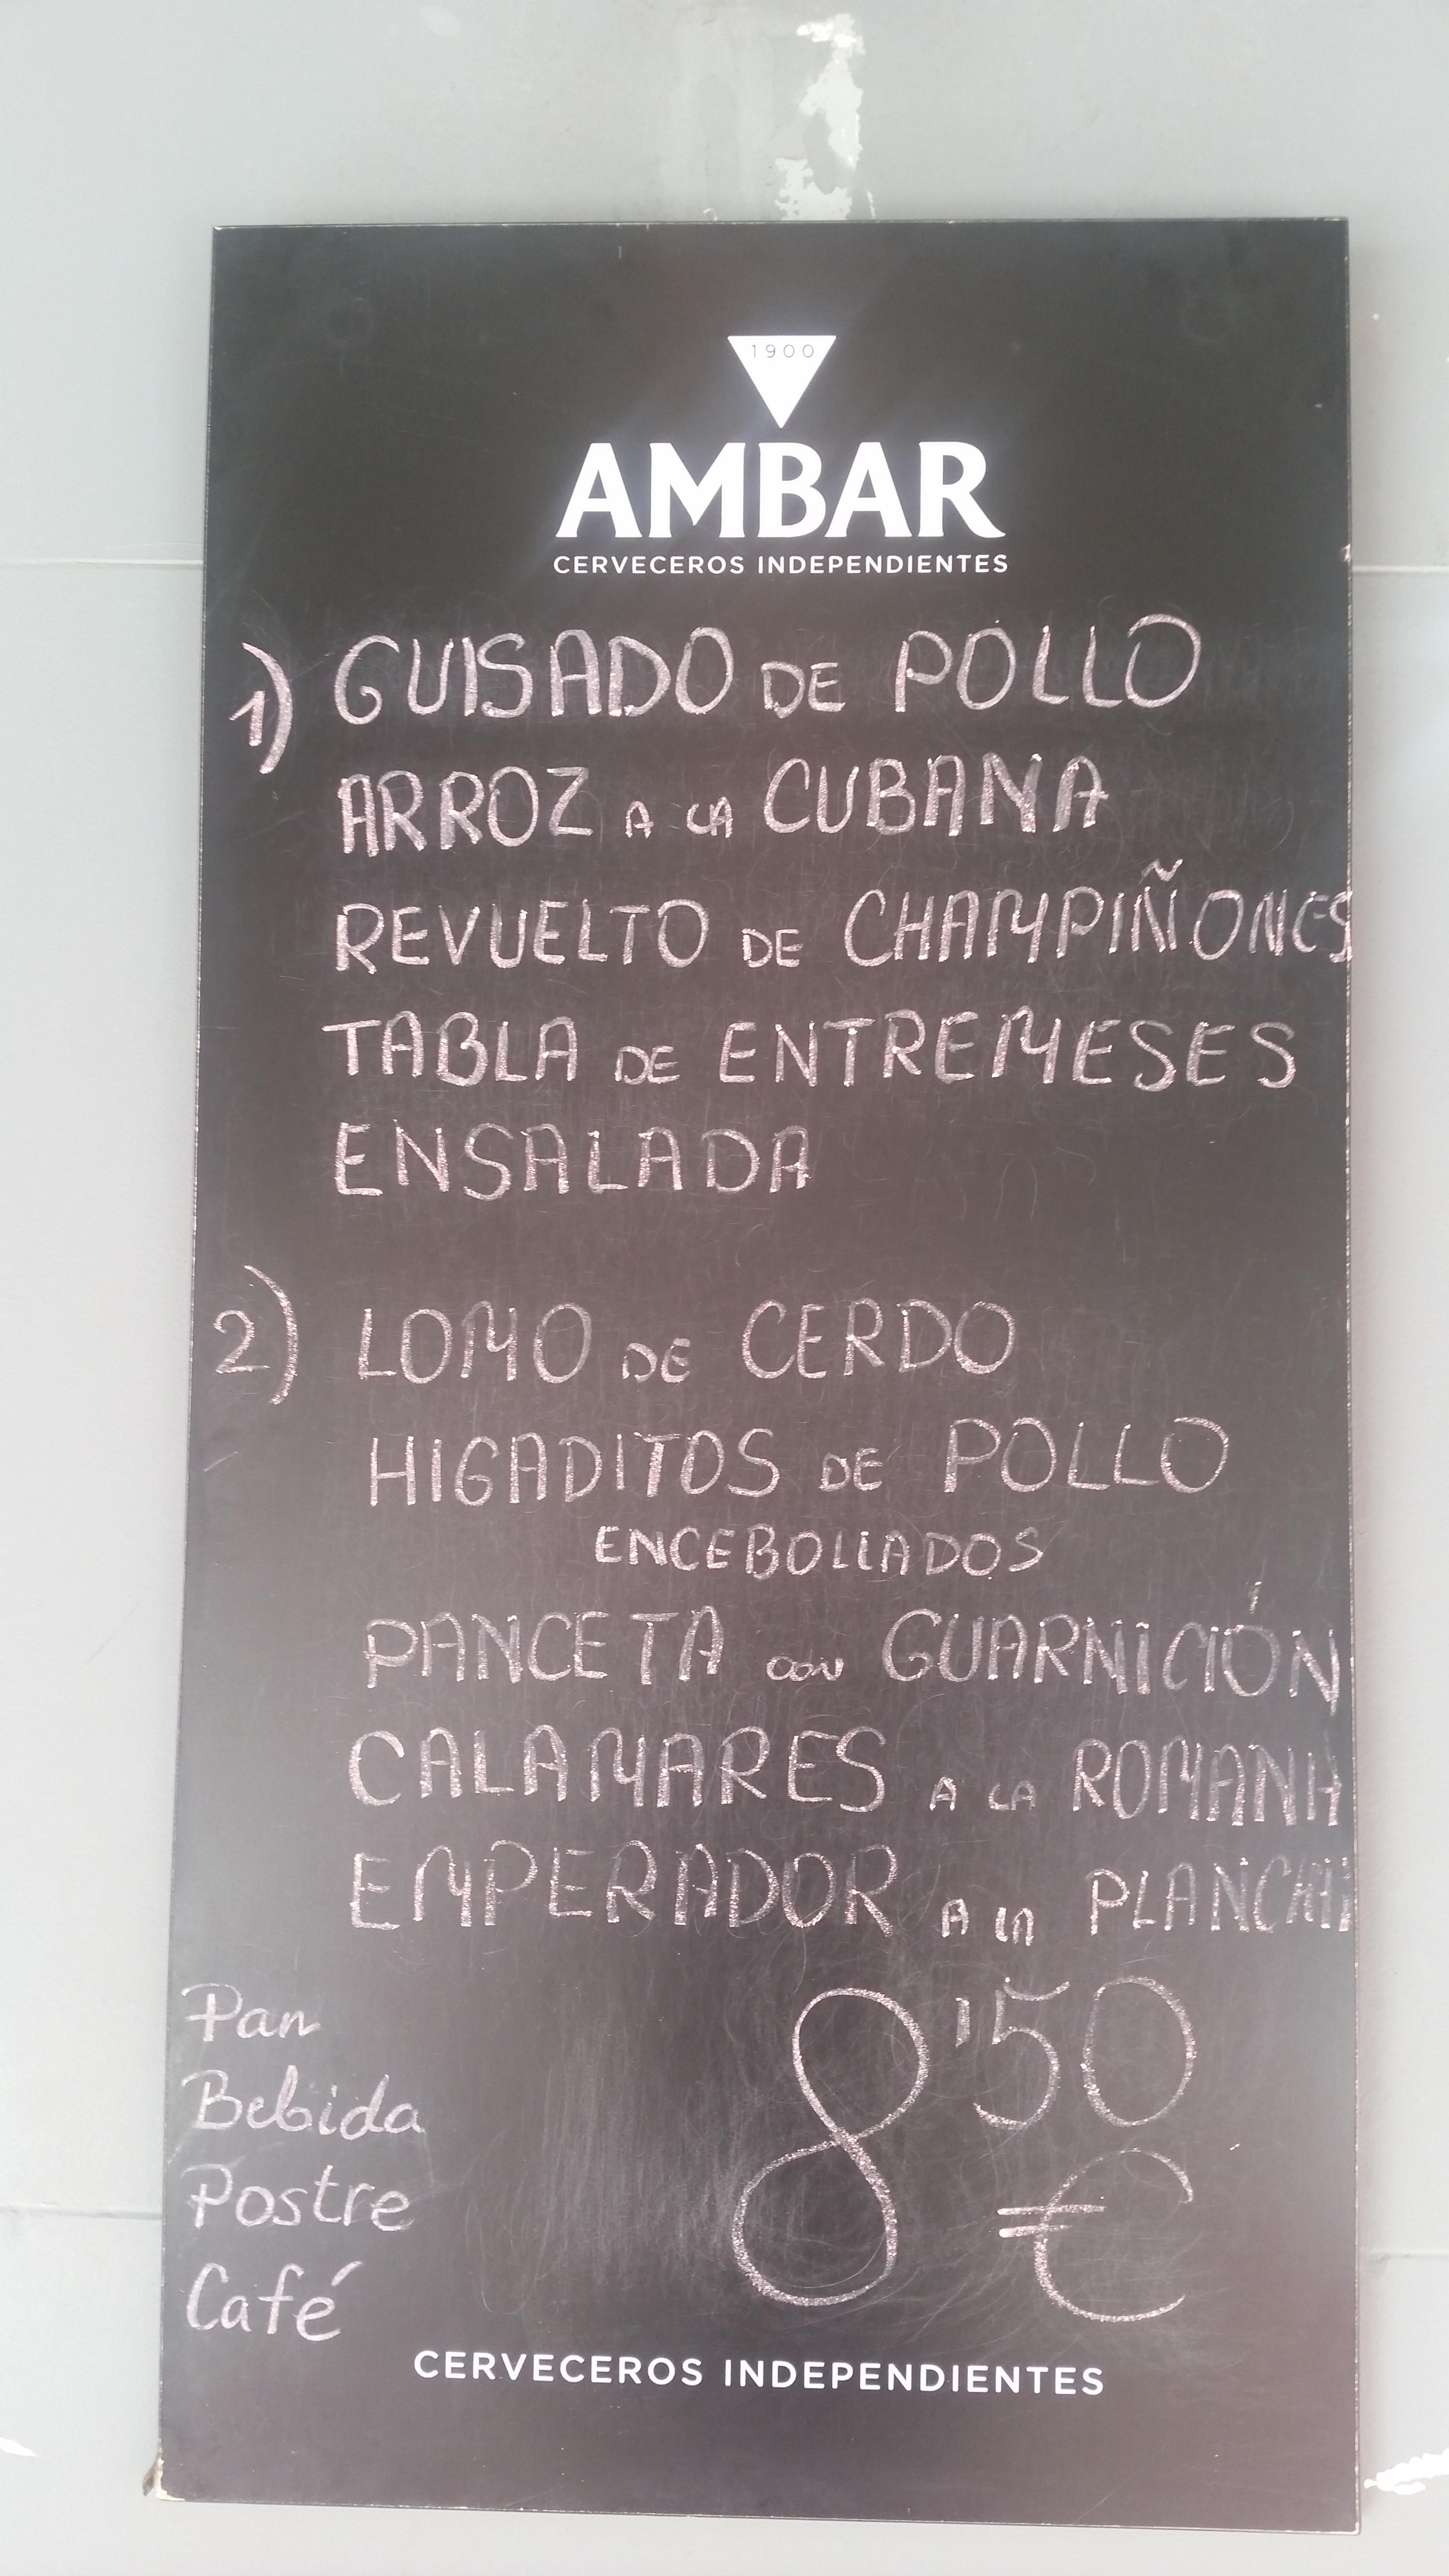 1900
AMBAR
CERVECEROS INDEPENDIENTES
1) GUISADO DE POLLO
ARROZ A LA CUBANA
REVUELTO DE CHAMPIÑONES
TABLA DE ENTREMESES
ENSALADA
2) LOMO DE CERDO
HIGADITOS DE POLLO
ENCEBOLLADOS
PANCETA CON GUARNICIÓN
CALAMARES A LA ROMANA
EMPERADOR A LA PLANCHA
Pan
Bebida
Postre
Café
8'50
€
CERVECEROS INDEPENDIENTES